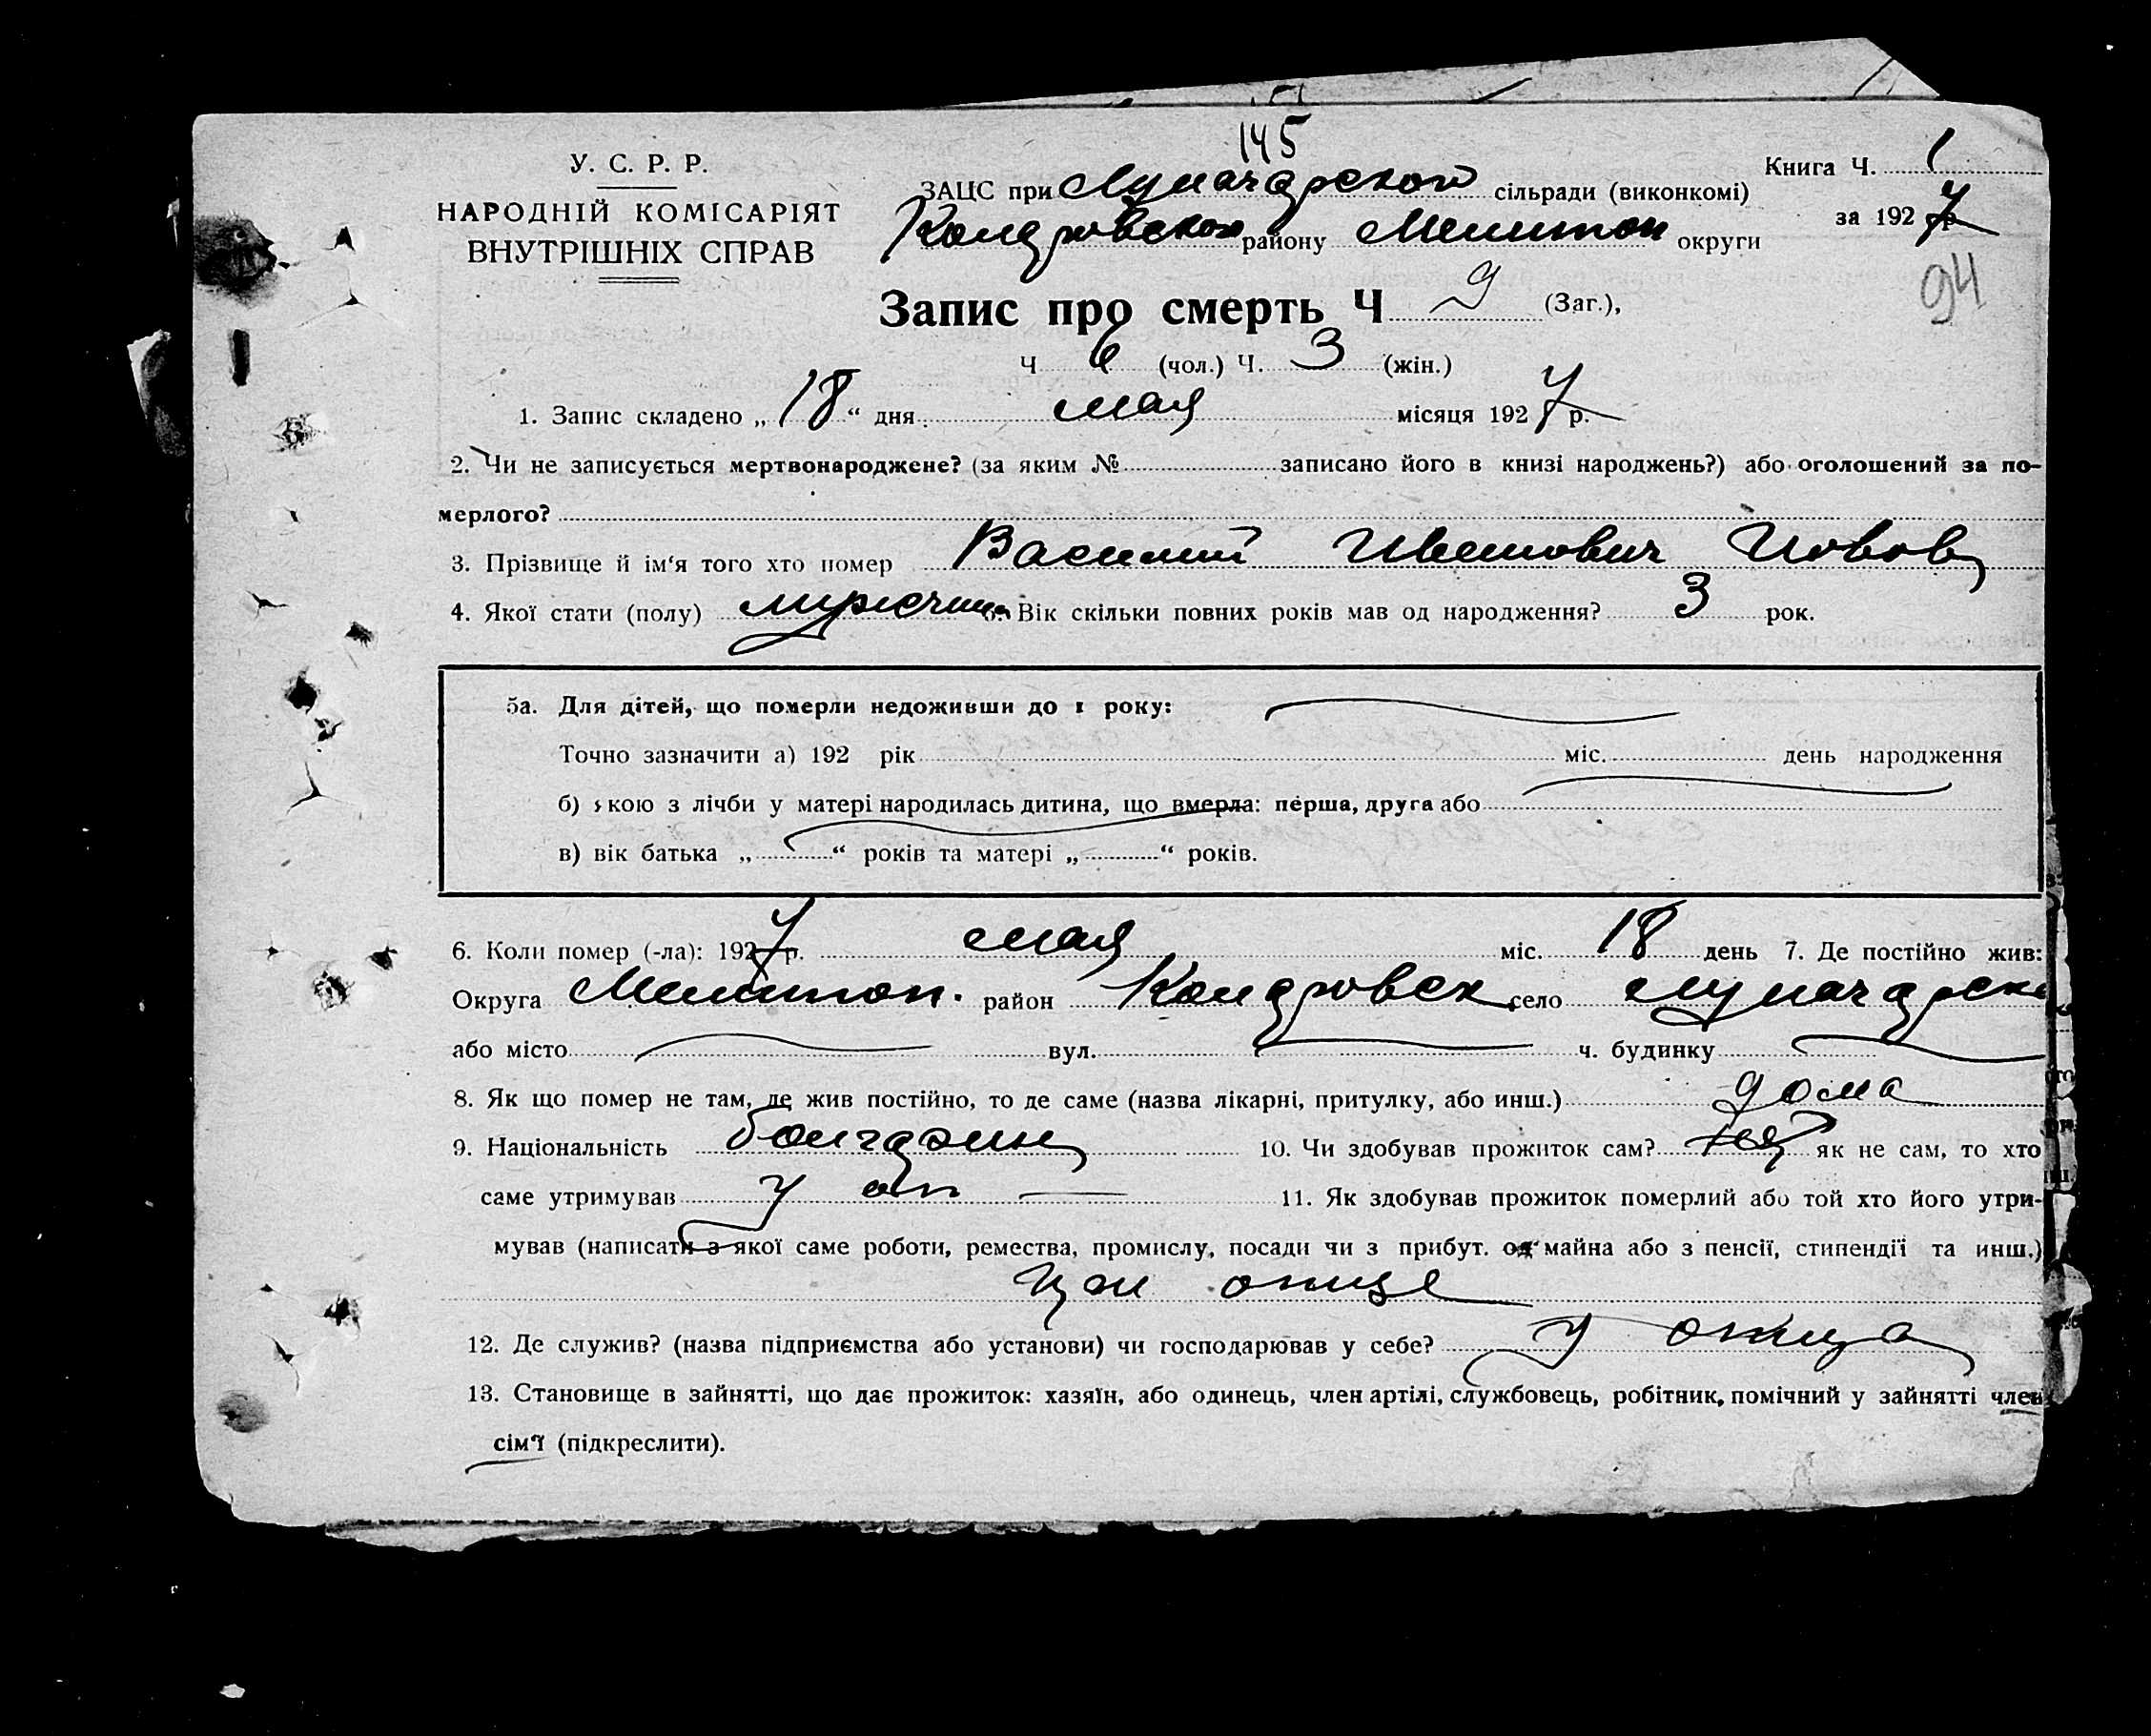 145
У. С. Р. Р.
НАРОДНІЙ КОМІСАРІЯТ
ВНУТРІШНІХ СПРАВ
Книга Ч. 1
за 1927 р.
94
ЗАЦС при Луначарской сільради (виконкомі)
району Мелитоп округи
Запис про смерть Ч 9 (Заг.),
Ч 6 (чол.) Ч. 3 (жін.)
1. Запис складено „18“ дня мая місяця 1927 р.
2. Чи не записується мертвонароджене? (за яким № записано його в книзі народжень?) або оголошений за по-
мерлого?
3. Прізвище й ім'я того хто помер Василий Иванович
4. Якої стати (полу) мужчина 5. Вік скільки повних років мав од народження? 3 рок.
5а. Для дітей, що померли недоживши до 1 року:
Точно зазначити а) 192 рік міс. день народження
б) якою з лічби у матері народилась дитина, що вмерла: перша, друга або
в) вік батька „ “ років та матері „ “ років.
6. Коли помер (-ла): 1927 р. мая міс. 18 день 7. Де постійно жив:
Округа Мелитоп. район село Луначарск
або місто вул. ч. будинку
8. Як що помер не там, де жив постійно, то де саме (назва лікарні, притулку, або инш.) дома
9. Національність болгарин 10. Чи здобував прожиток сам? нет як не сам, то хто
саме утримував у от 11. Як здобував прожиток померлий або той хто його утри-
мував (написати з якої саме роботи, ремества, промислу, посади чи з прибут. од майна або з пенсії, стипендії та инш.)
при отце
12. Де служив? (назва підприємства або установи) чи господарював у себе? у отца
13. Становище в зайнятті, що дає прожиток: хазяїн, або одинець, член артілі, службовець, робітник, помічний у зайнятті член
сім'ї (підкреслити).